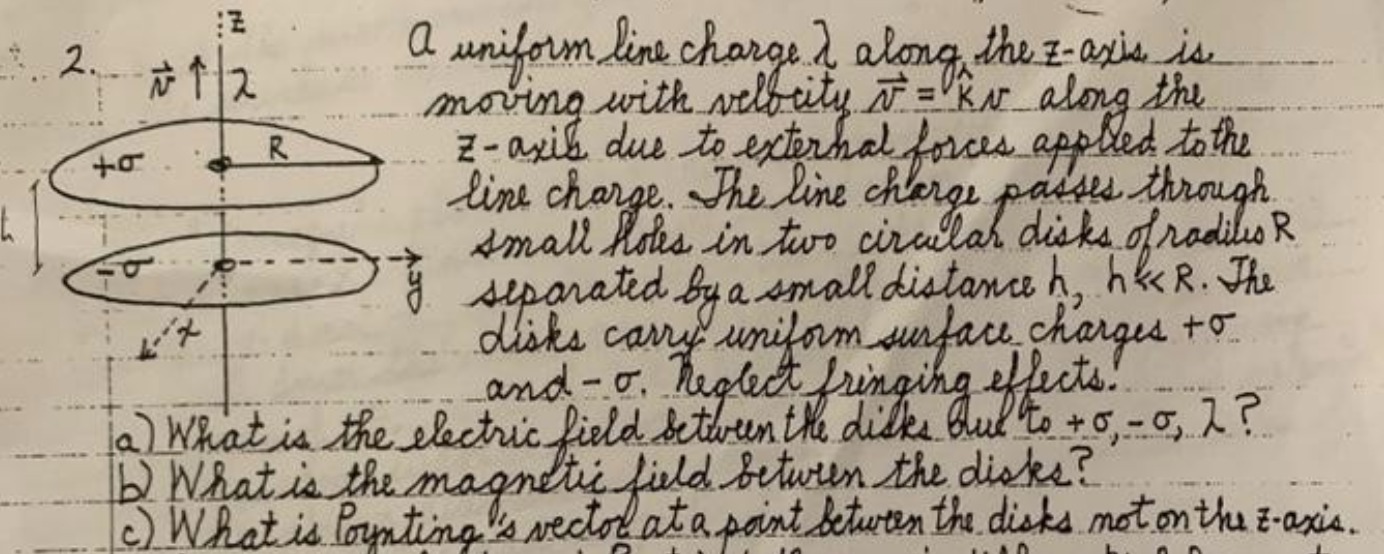 2.
z
v⃗ ↑ λ
+σ R
h
-σ
y
x
A uniform line charge λ along the z-axis is
moving with velocity v⃗ = k̂v along the
z-axis due to external forces applied to the
line charge. The line charge passes through
small holes in two circular disks of radius R
separated by a small distance h, h<<R. The
disks carry uniform surface charges +σ
and -σ. Neglect fringing effects.
a) What is the electric field between the disks due to +σ, -σ, λ?
b) What is the magnetic field between the disks?
c) What is Poynting's vector at a point between the disks not on the z-axis.